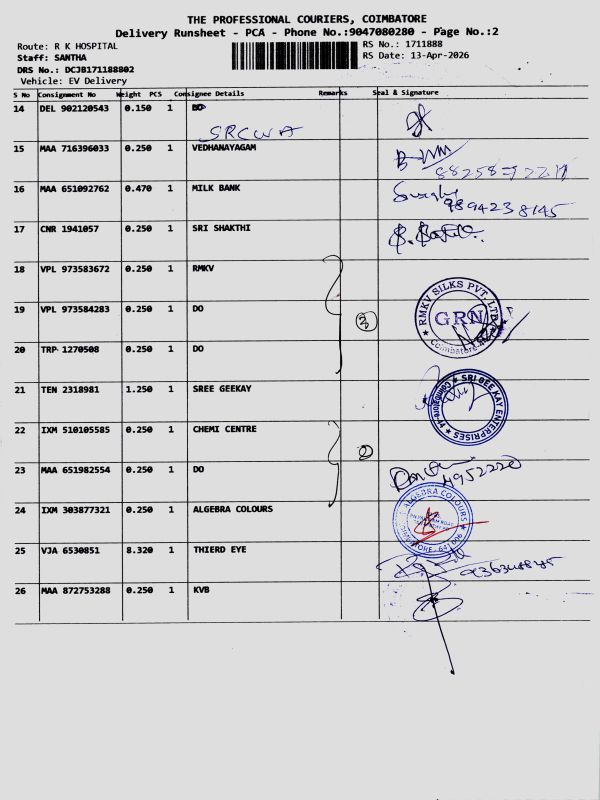 THE PROFESSIONAL COURIERS, COIMBATORE
Delivery Runsheet - PCA - Phone No.:9047080280 - Page No.:2
Route: R K HOSPITAL
RS No.: 1711888
Staff: SANTHA
RS Date: 13-Apr-2026
DRS No.: DCJB171188802
Vehicle: EV Delivery
S No Consignment No Weight PCS Consignee Details Remarks Seal & Signature
14 DEL 902120543 0.150 1 DO
SRCWA
15 MAA 716396033 0.250 1 VEDHANAYAGAM
16 MAA 651092762 0.470 1 MILK BANK
9894238145
17 CNR 1941057 0.250 1 SRI SHAKTHI
18 VPL 973583672 0.250 1 RMKV
19 VPL 973584283 0.250 1 DO
3
RMKV SILKS PVT. LTD
GRN
Coimbatore
20 TRP 1270508 0.250 1 DO
21 TEN 2318981 1.250 1 SREE GEEKAY
SRI GEE KAY ENTERPRISES
Coimbatore
22 IXM 510105585 0.250 1 CHEMI CENTRE
2
23 MAA 651982554 0.250 1 DO
24 IXM 303877321 0.250 1 ALGEBRA COLOURS
ALGEBRA COLOURS
25 VJA 6530851 8.320 1 THIERD EYE
26 MAA 872753288 0.250 1 KVB